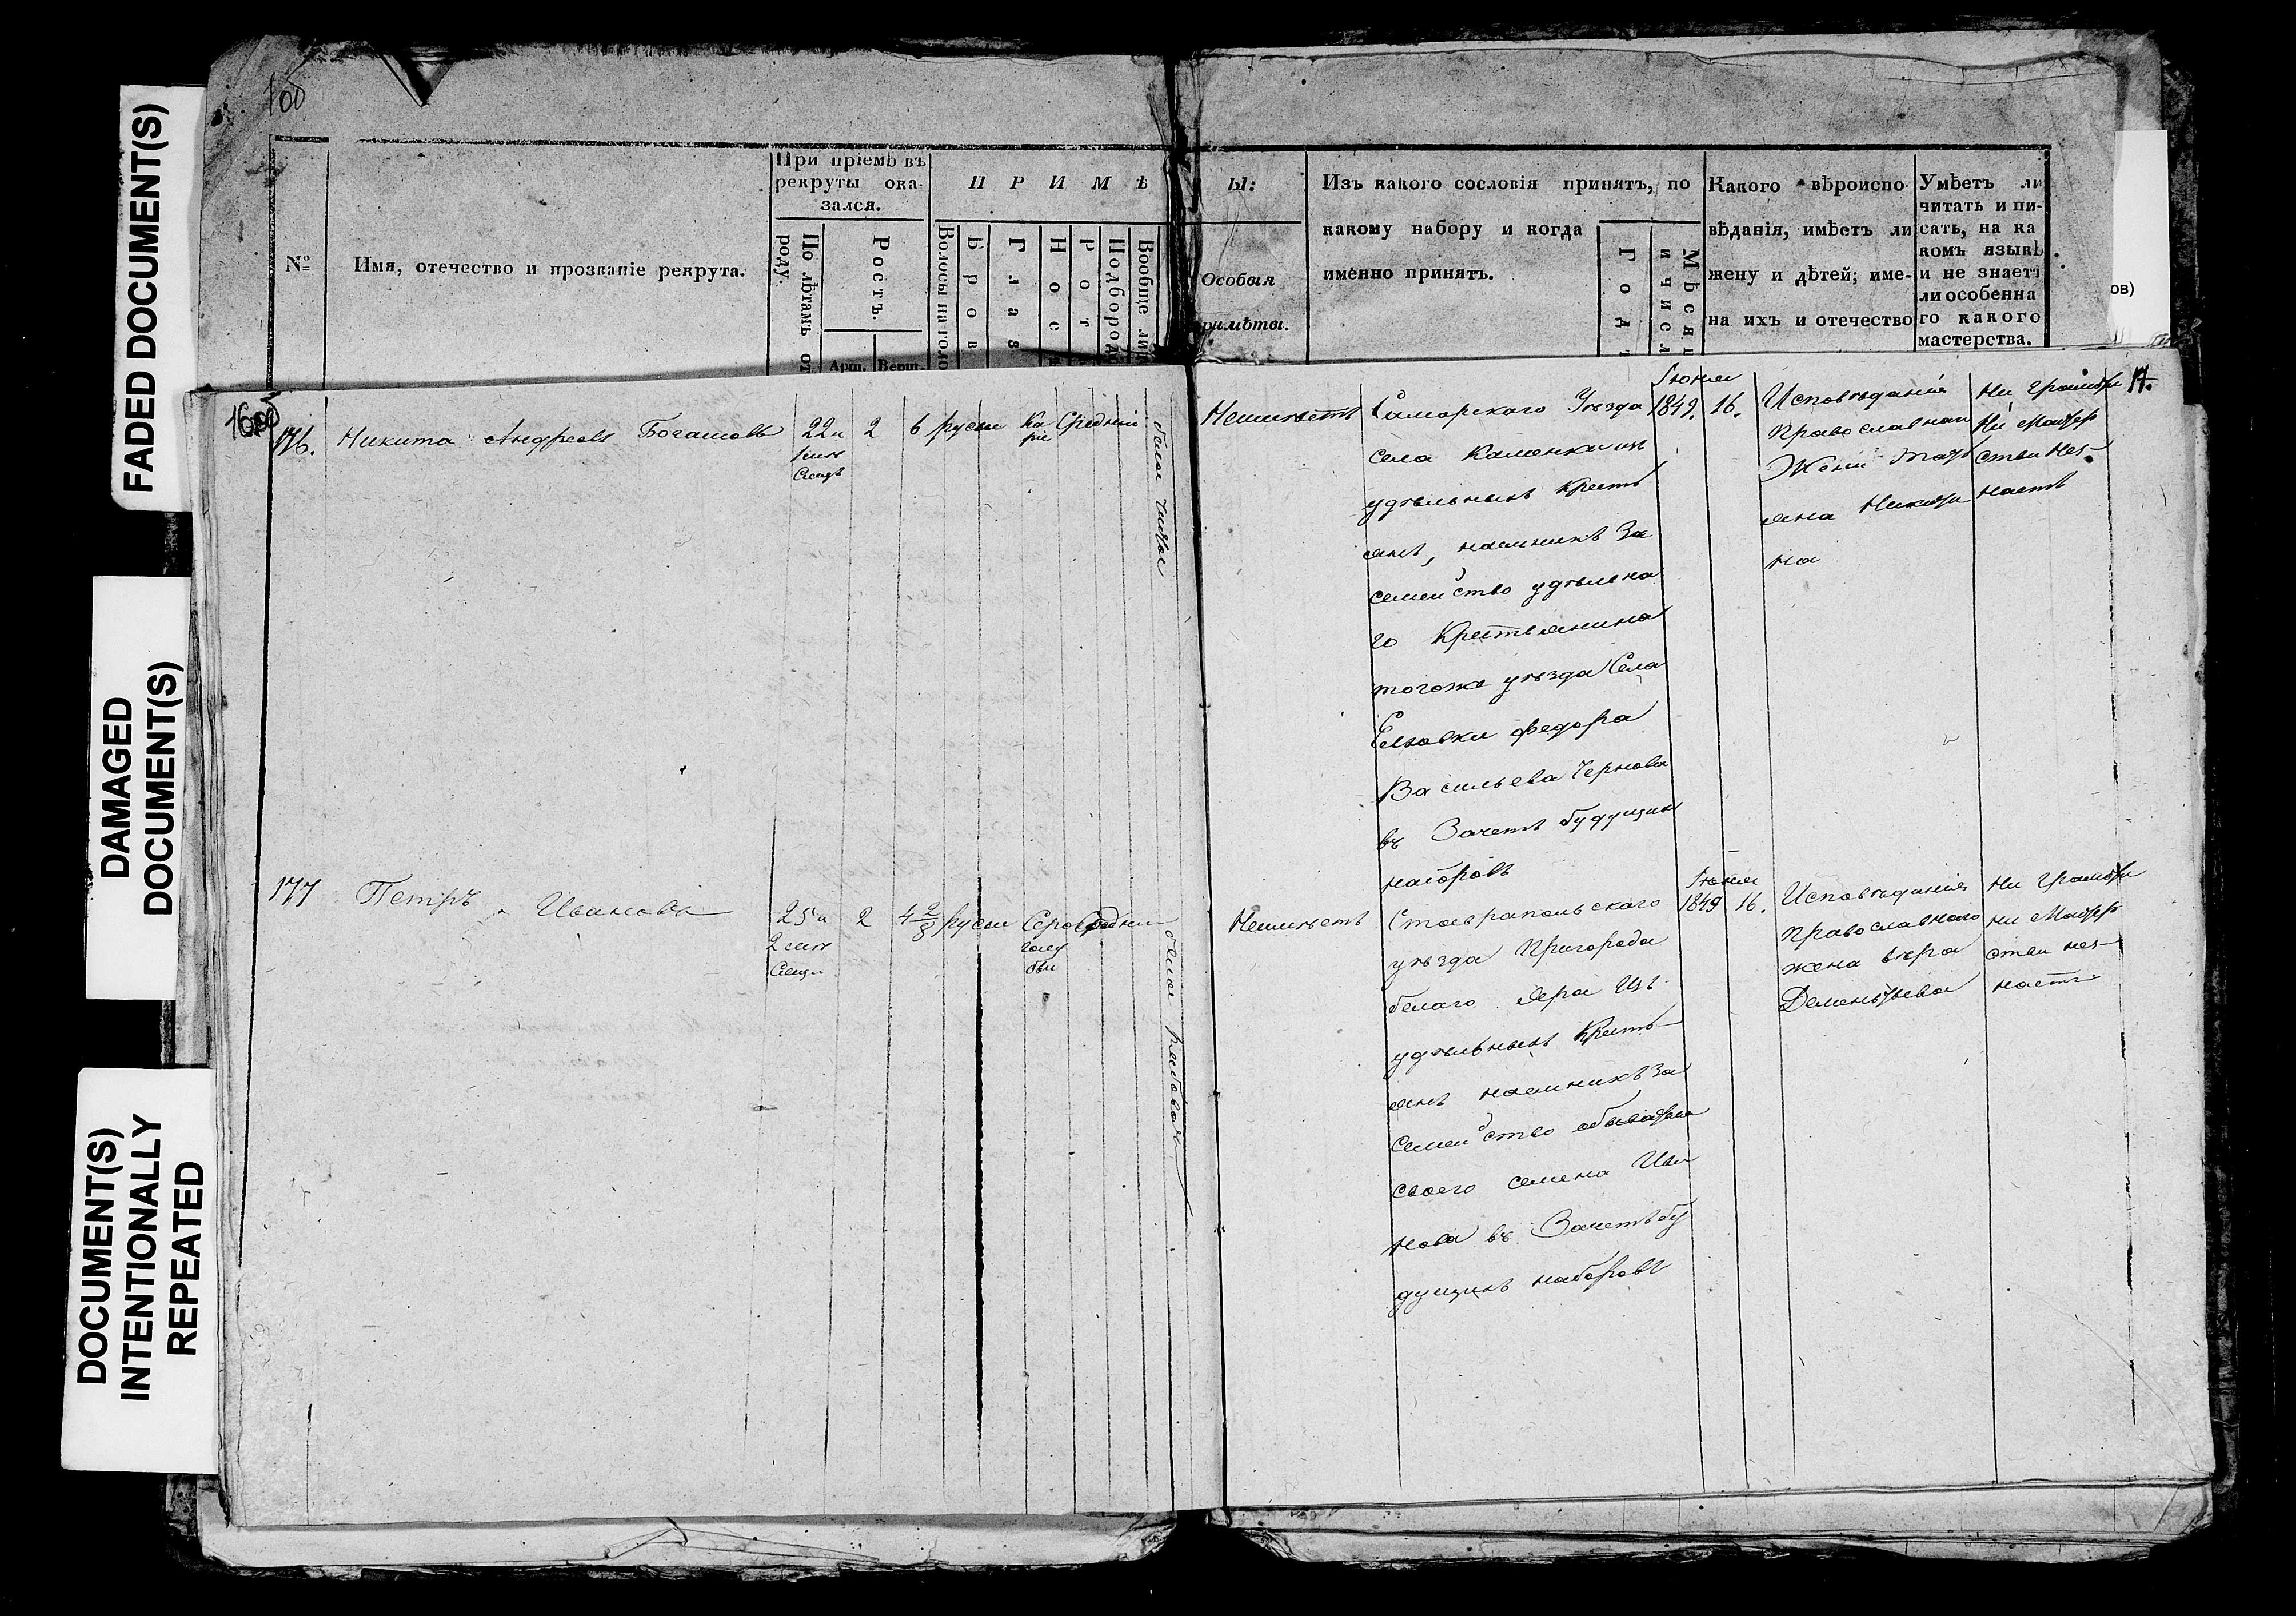 FADED DOCUMENT(S)
DAMAGED
DOCUMENT(S)
DOCUMENT(S)
INTENTIONALLY
REPEATED
16об
№
Имя, отечество и прозваніе рекрута.
При пріемѣ въ
рекруты ока-
зался.
По лѣтамъ от
роду.
Ростъ.
Арш.
Верш.
ПРИМѢ
Волосы на голо
Бров
Глаз
Носъ
Рот
Подбород
Вообще ли
Ы:
Особыя
римѣты.
Изъ какого сословія принятъ, по
какому набору и когда
именно принятъ.
Год
Мѣсяц
и числ
Какого вѣроиспо-
вѣданія, имѣетъ ли
жену и дѣтей; име-
на ихъ и отечество
Умѣетъ ли
читать и пи-
сать, на ка
комъ языкѣ
и не знаетъ
ли особенна
го какого
мастерства.
ов)
17.
176. Никита Андреевъ Богашовъ
22 и
2
6
русые
Ка
ріе
Средній
белое чистое
Неимѣетъ
Самарского Уѣзда
села Каменки изъ
удѣльныхъ Кресть
янъ, наемникъ За
семейство удѣльна
го Крестьянина
тогожъ уѣзда Села
Елховки Федора
Васильева Чернова
въ Зачетъ будущихъ
наборовъ
Іюня
1849. 16.
Исповѣданія
православнаго
Жена
Никити
на
Ни грамоты
Ни Мастер
ства нез-
наетъ
177 Петръ Ивановъ
25 и
2
4 2/8
русые
Серо
голу
бые
Средній
белое рябоват
Неимѣетъ
Ставрапольского
уѣзда Пригорода
белаго Яра Изъ
удѣльныхъ Кресть-
янъ наемникъ За
Семейство обывателя
своего Семена Ива
нова въ Зачетъ бу
дущихъ наборовъ
Іюня
1849 16.
Исповѣданія
православнаго
жена вѣра
Дементьева
Ни грамоты
ни Мастер
ства нез-
наетъ